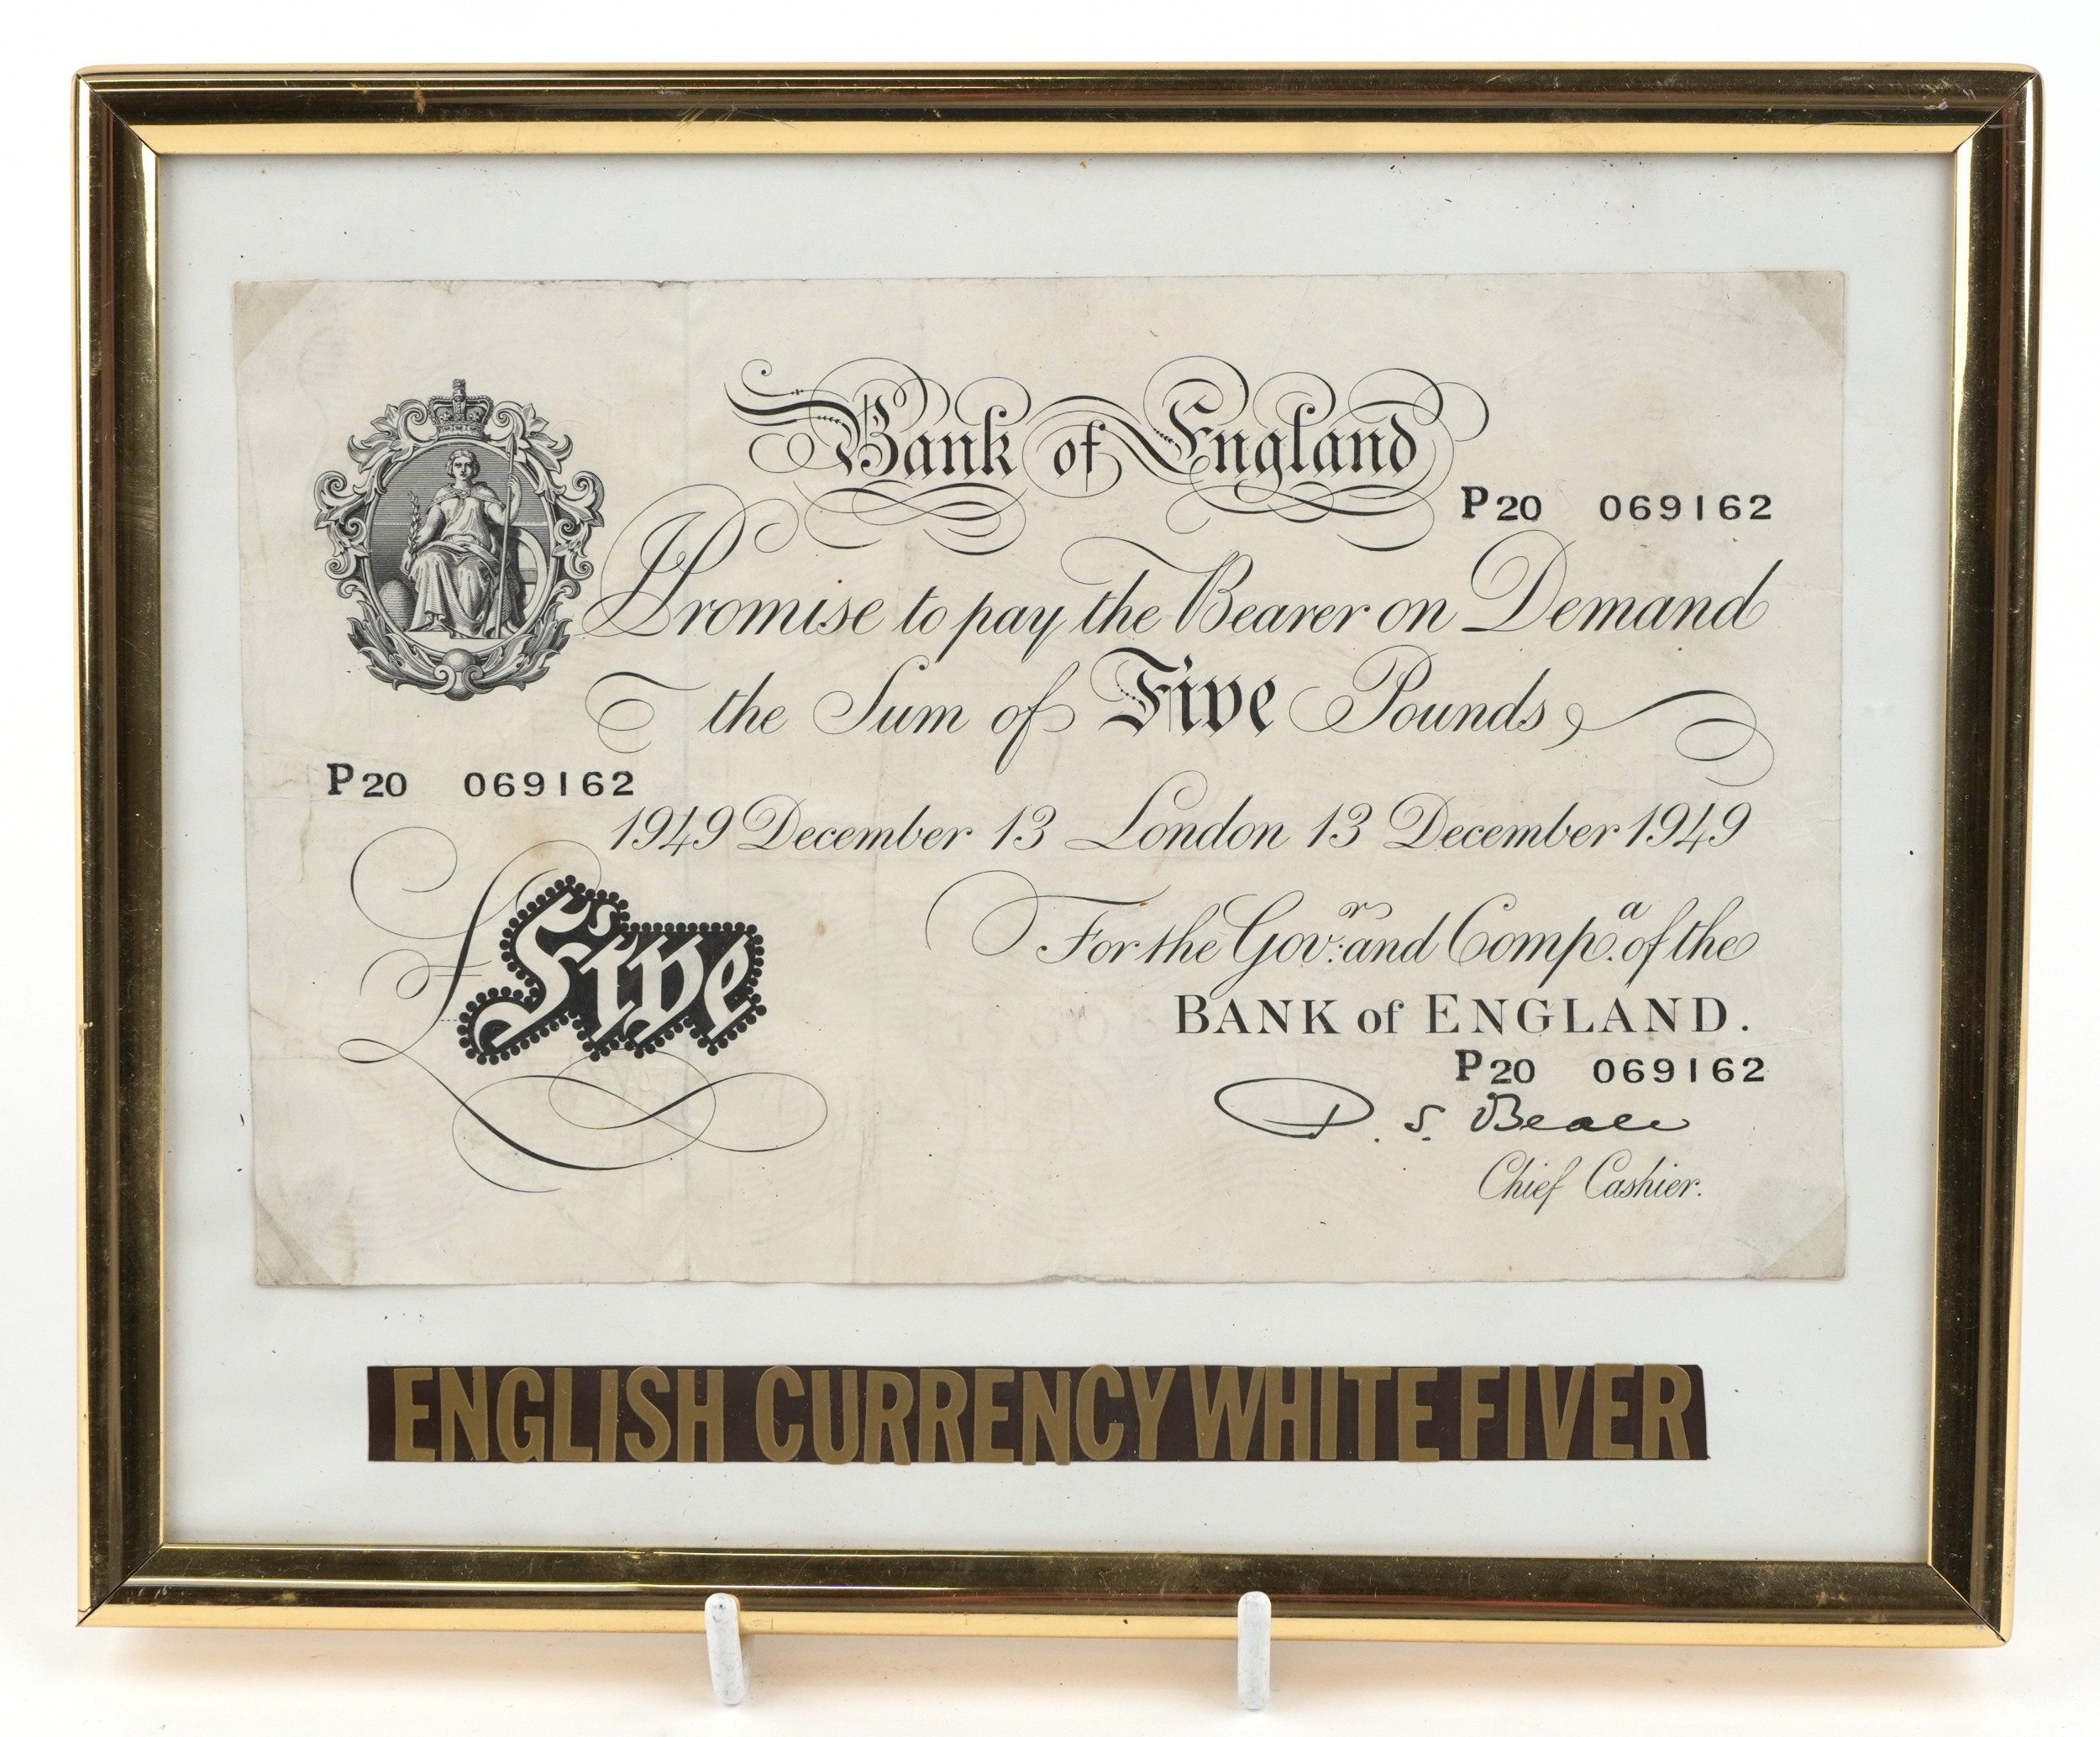 Bank of England
P20 069162
Promise to pay the Bearer on Demand
the Sum of Five Pounds
P20 069162
1949 December 13 London 13 December 1949
£ Five
For the Gov.r and Comp.a of the
BANK of ENGLAND.
P20 069162
P. S. Beale
Chief Cashier.
ENGLISH CURRENCY WHITE FIVER